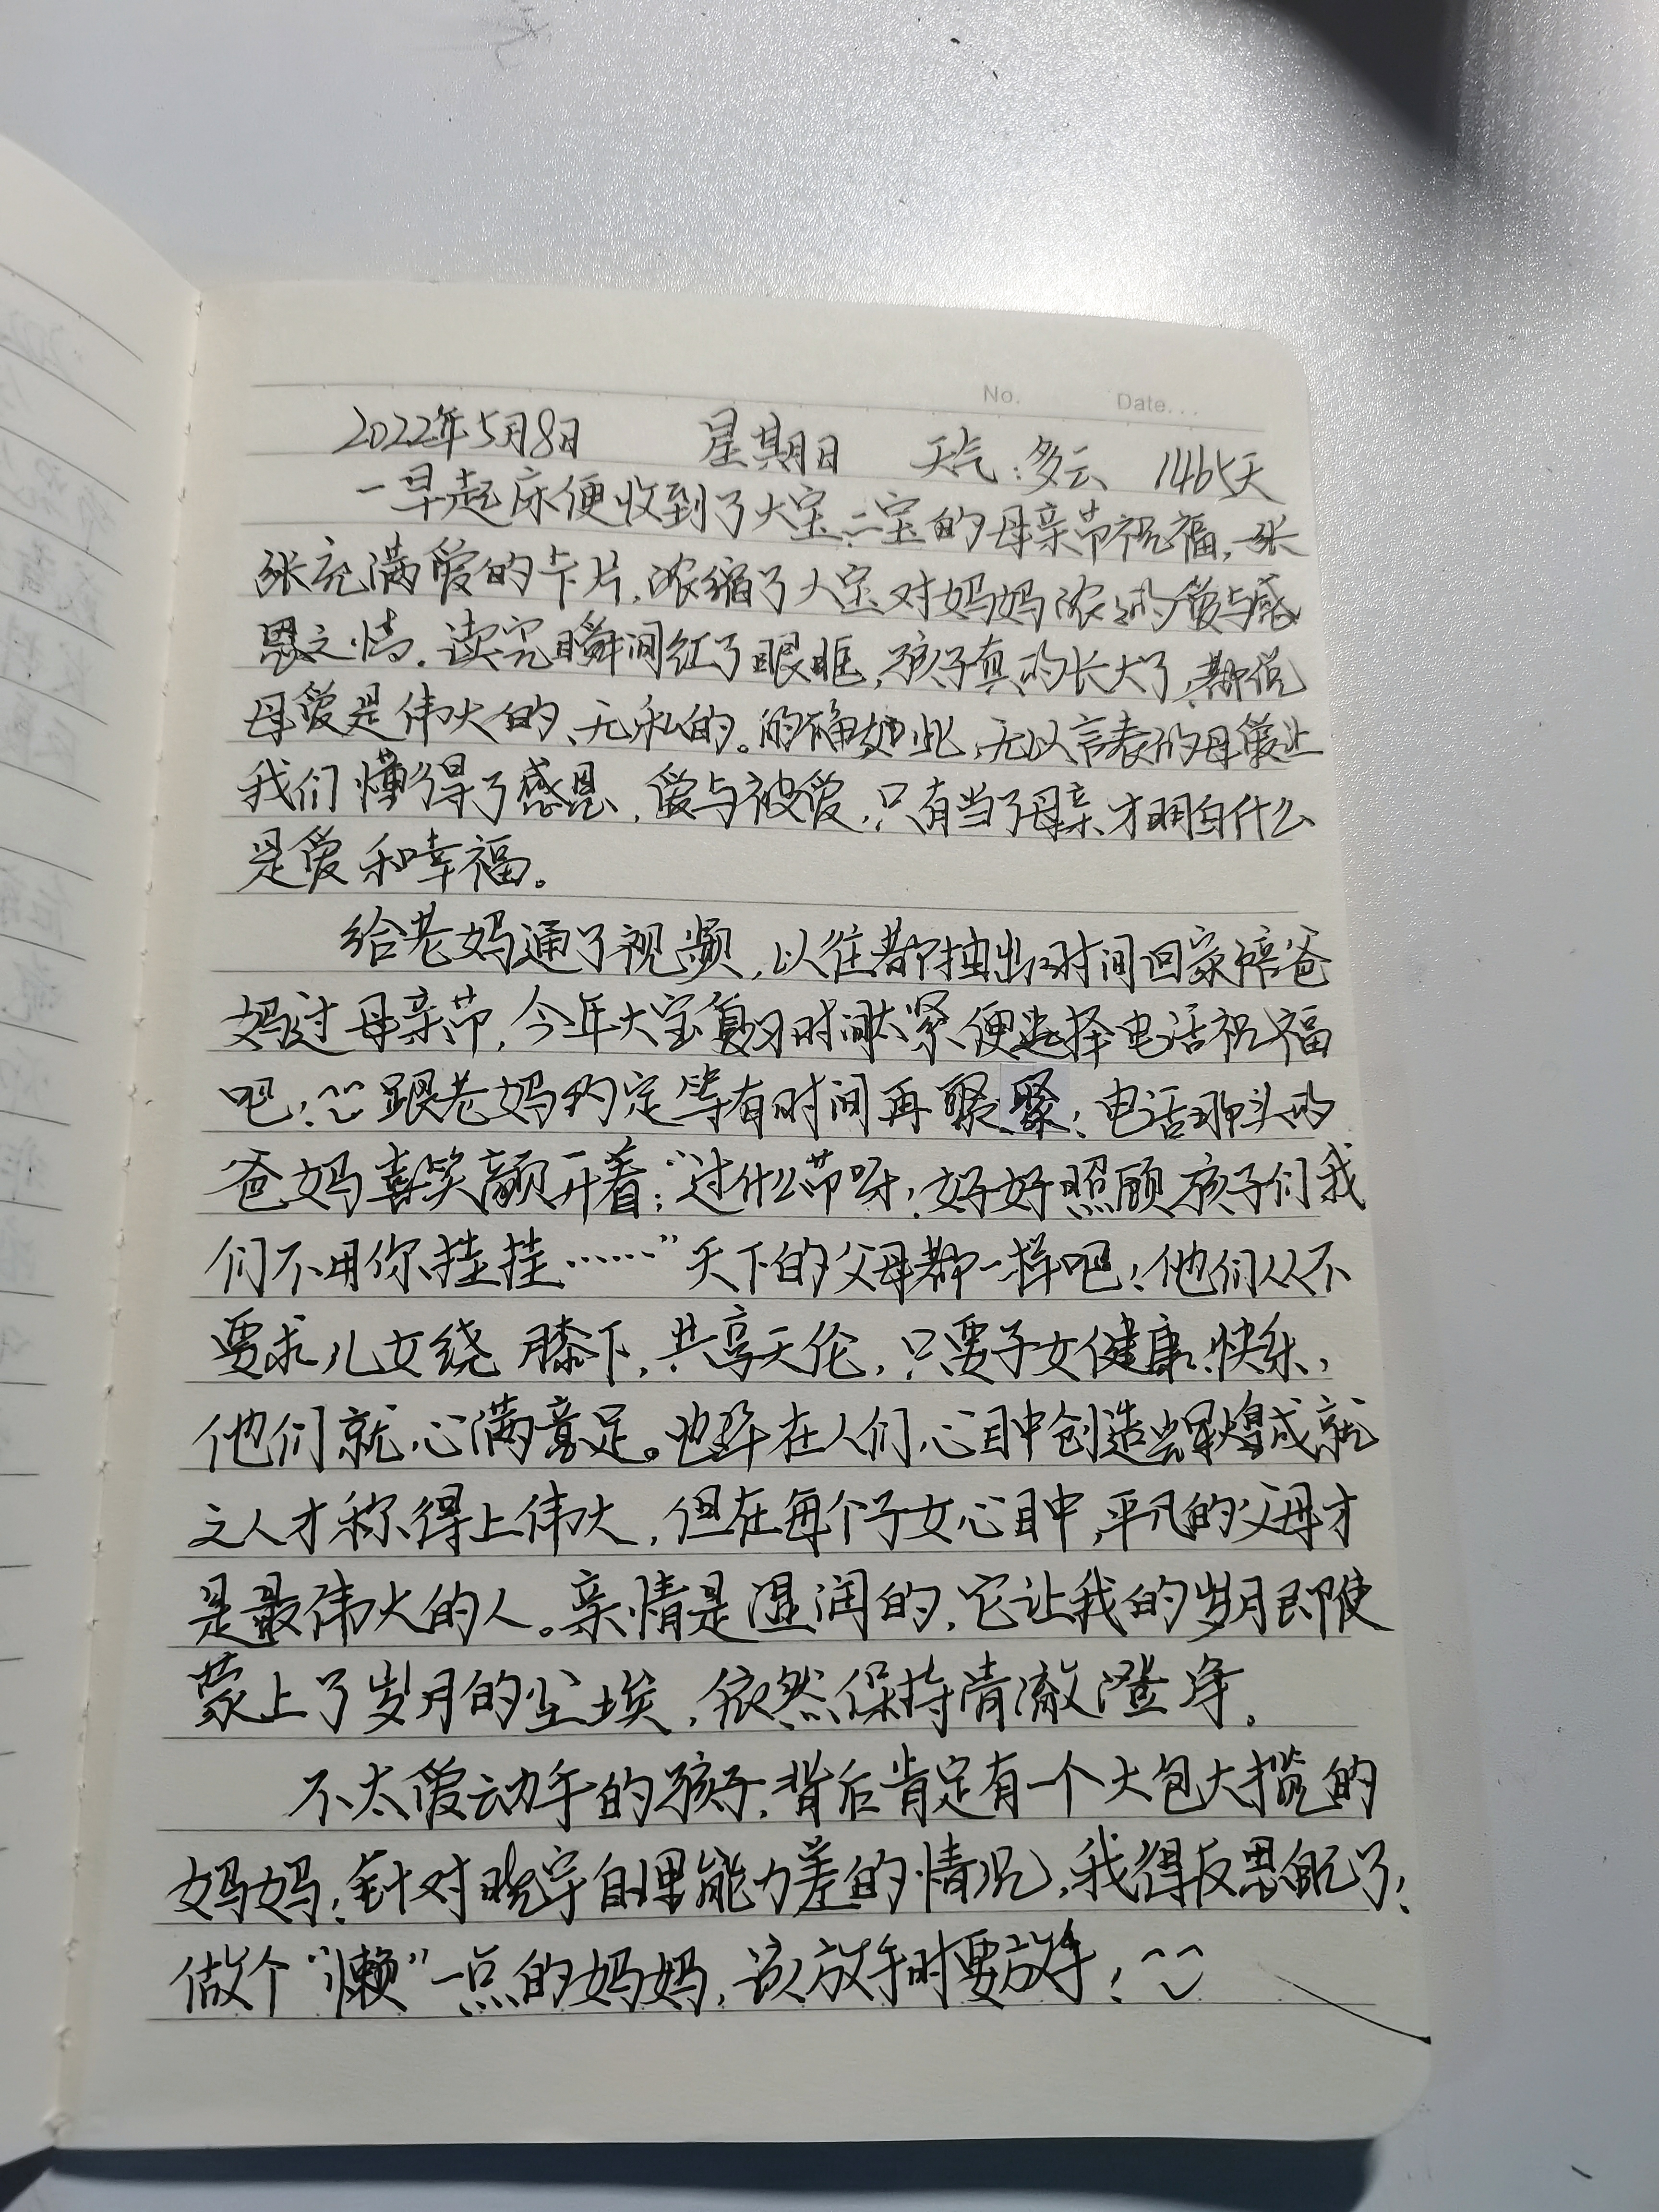 No.	Date...
2022年5月8日 星期日 天气:多云 1465天
一早起床便收到了大宝二宝的母亲节祝福,一张
张充满爱的卡片,浓缩了大宝对妈妈浓浓的爱与感
恩之情。读完瞬间红了眼眶,孩子真的长大了,都说
母爱是伟大的、无私的。的确如此,无以言表的母爱让
我们懂得了感恩,爱与被爱,只有当了母亲才明白什么
是爱和幸福。
给老妈通了视频,以往都抽出时间回家陪爸
妈过母亲节,今年大宝复习时间太紧便选择电话祝福
吧!跟老妈约定等有时间再聚聚!电话那头的
爸妈喜笑颜开着:“过什么节呀!好好照顾孩子们我
们不用你挂挂……”天下的父母都一样吧!他们从不
要求儿女绕膝下,共享天伦,只要子女健康、快乐,
他们就心满意足。也许在人们心目中创造辉煌成就
之人才称得上伟大,但在每个子女心目中,平凡的父母才
是最伟大的人。亲情是湿润的,它让我的岁月即使
蒙上了岁月的尘埃,依然保持清澈澄净。
不太爱动手的孩子,背后肯定有一个大包大揽的
妈妈!针对晓宇自理能力差的情况,我得反思自己了!
做个“懒”一点的妈妈,该放手时要放手!